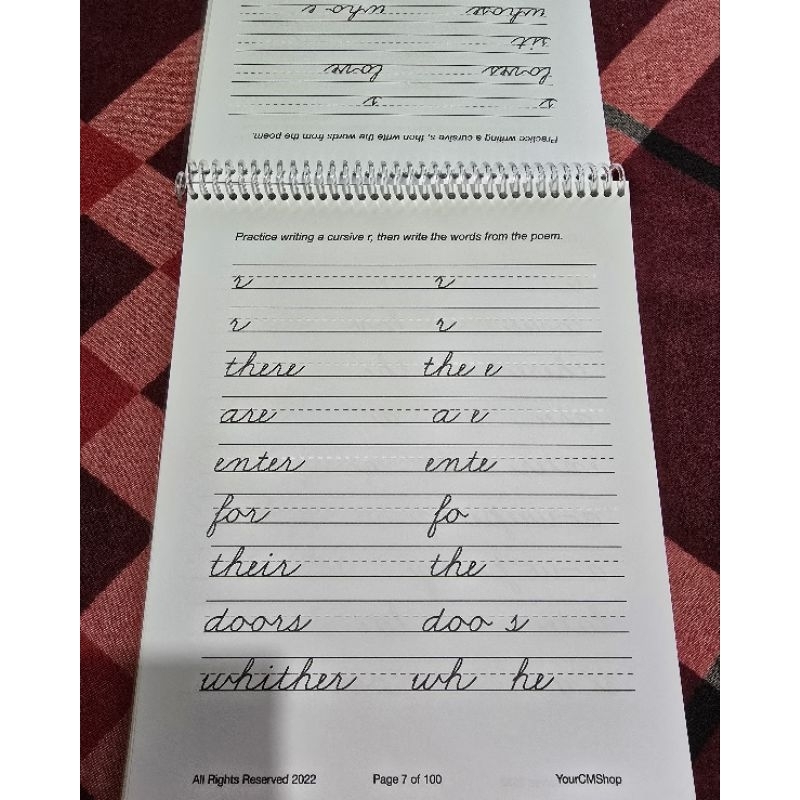 Practice writing a cursive s, then write the words from the poem.
s s
loves love
sit
whose who e
Practice writing a cursive r, then write the words from the poem.
r r
r r
there the e
are a e
enter ente
for fo
their the
doors doo s
whither wh he
All Rights Reserved 2022 Page 7 of 100 YourCMShop